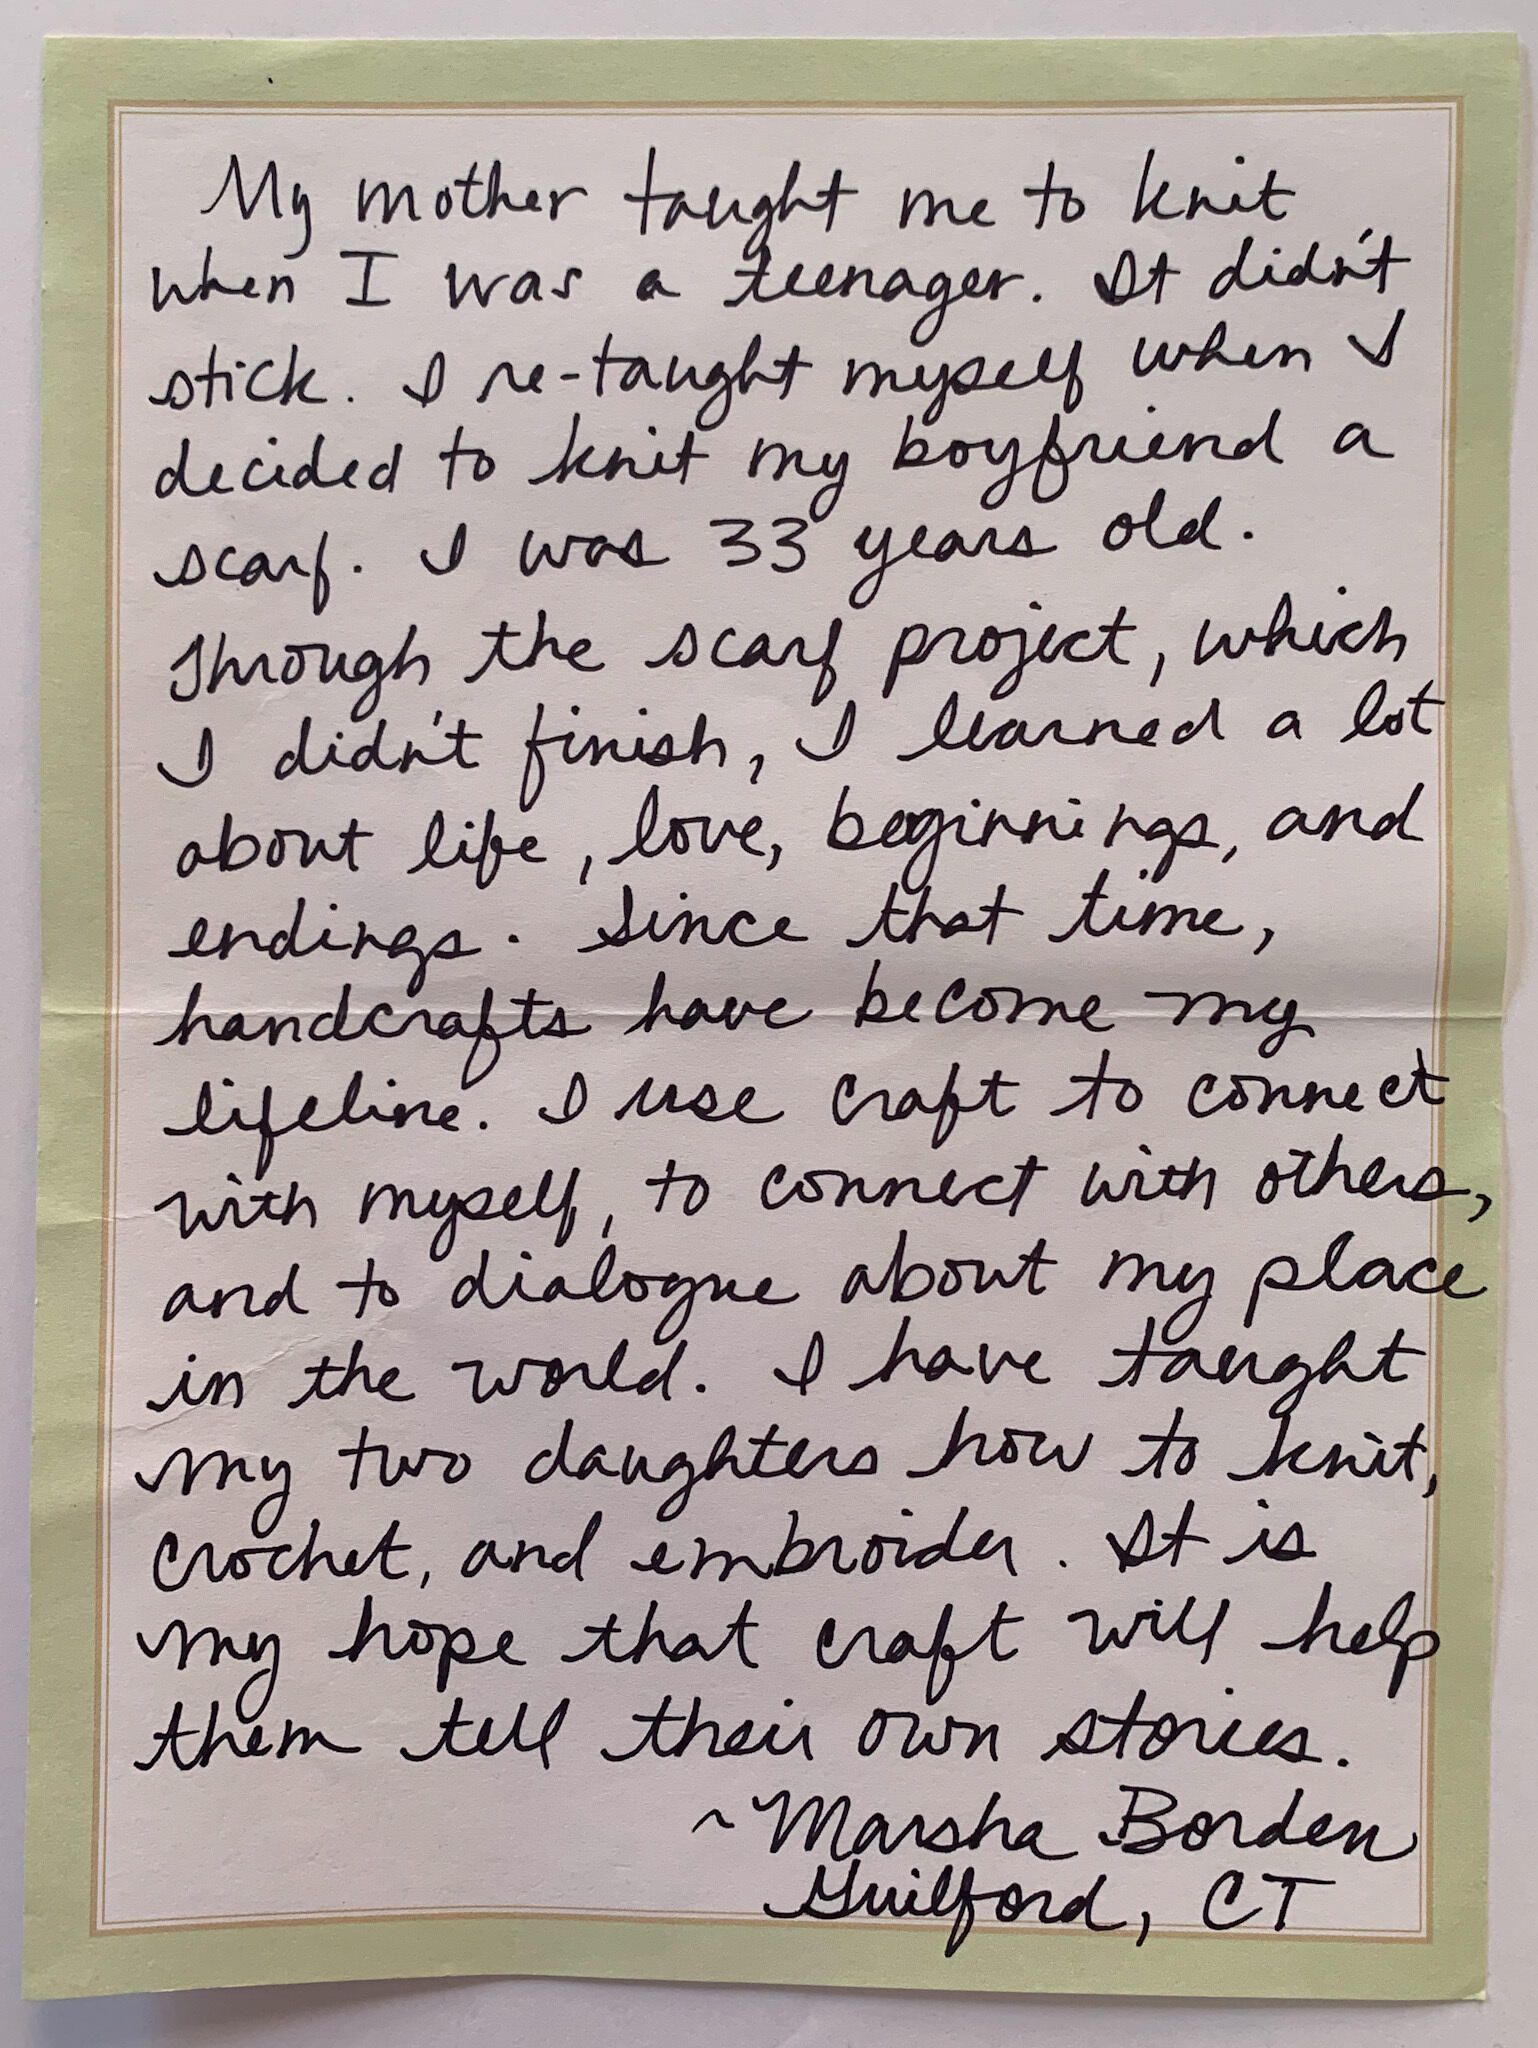 My mother taught me to knit
when I was a teenager. It didn't
stick. I re-taught myself when I
decided to knit my boyfriend a
scarf. I was 33 years old.
Through the scarf project, which
I didn't finish, I learned a lot
about life, love, beginnings, and
endings. Since that time,
handcrafts have become my
lifeline. I use craft to connect
with myself, to connect with others,
and to dialogue about my place
in the world. I have taught
my two daughters how to knit,
crochet, and embroider. It is
my hope that craft will help
them tell their own stories.
~Marsha Borden
Guilford, CT